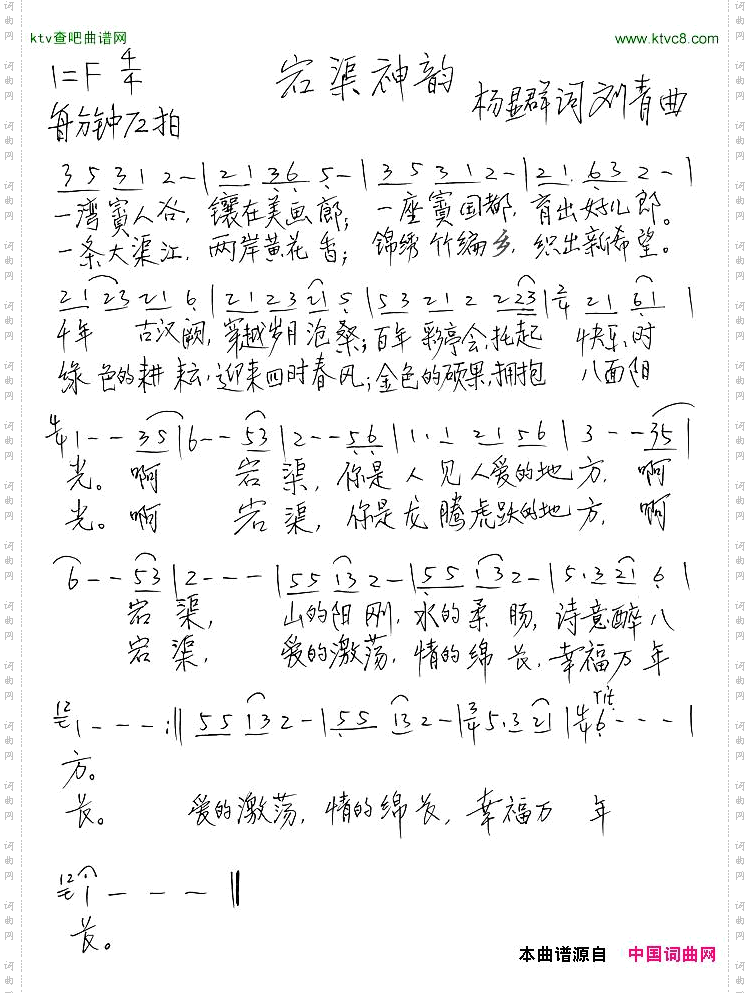 ktv查吧曲谱网
www.ktvc8.com
1=F 4/4
宕渠神韵
每分钟72拍
杨显群词 刘青曲
3 5 3 1 2 - | 2 1 3 6 5 - | 3 5 3 1 2 - | 2 1. 6 3 2 - |
一湾賨人谷, 镶在美画廊; 一座賨国都, 育出好儿郎。
一条大渠江, 两岸黄花香; 锦绣竹编乡, 织出新希望。
2 1 2 3 2 1 6 | 2 1 2 3 2 1 5 | 5 3 2 1 2 2 2 3 | 2/4 2 1 6 1 |
千年 古汉阙, 穿越岁月沧桑; 百年彩亭会, 托起 快乐时
绿色的耕耘, 迎来四时春风; 金色的硕果, 拥抱 八面阳
4/4 1 - - 3 5 | 6 - - 5 3 | 2 - - 5 6 | 1. 1 2 1 5 6 | 3 - - 3 5 |
光。啊 宕渠, 你是人见人爱的地方, 啊
光。啊 宕渠, 你是龙腾虎跃的地方, 啊
6 - - 5 3 | 2 - - - | 5 5 1 3 2 - | 5 5 1 3 2 - | 5. 3 2 1 6 |
宕渠, 山的阳刚, 水的柔肠, 诗意醉八
宕渠, 爱的激荡, 情的绵长, 幸福万年
12 1 - - - :‖ 5 5 1 3 2 - | 5 5 1 3 2 - | 3/4 5. 3 2 1 | 4/4 6 - - - |
rit
方。
长。 爱的激荡, 情的绵长, 幸福万 年
12 1 - - - ‖
长。
本曲谱源自 中国词曲网
词曲网